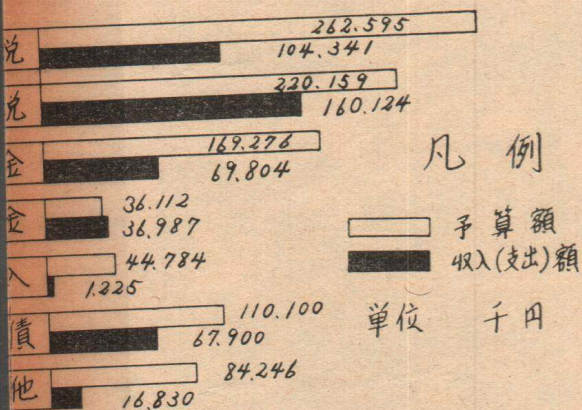 262.595
税 104.341
220.159
税 160.124
169.276
金 69.804
36.112
金 36.987
44.784
入 1.225
110.100
債 67.900
84.246
他 16.830
凡例
予算額
収入(支出)額
単位 千円